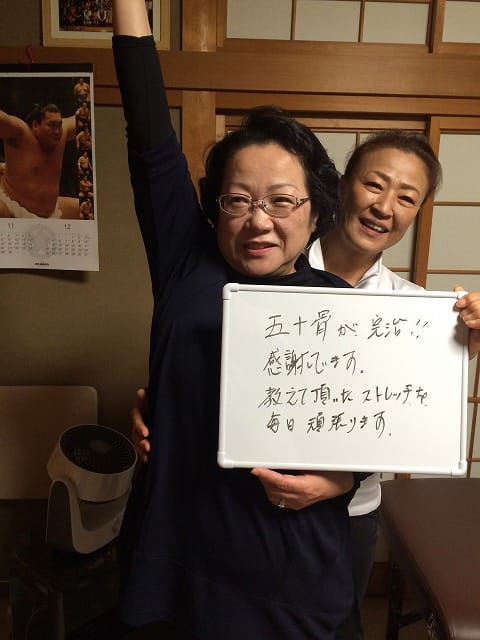 11
12
五十骨が完治!!
感謝してます。
教えて頂いたストレッチを
毎日頑張ります。